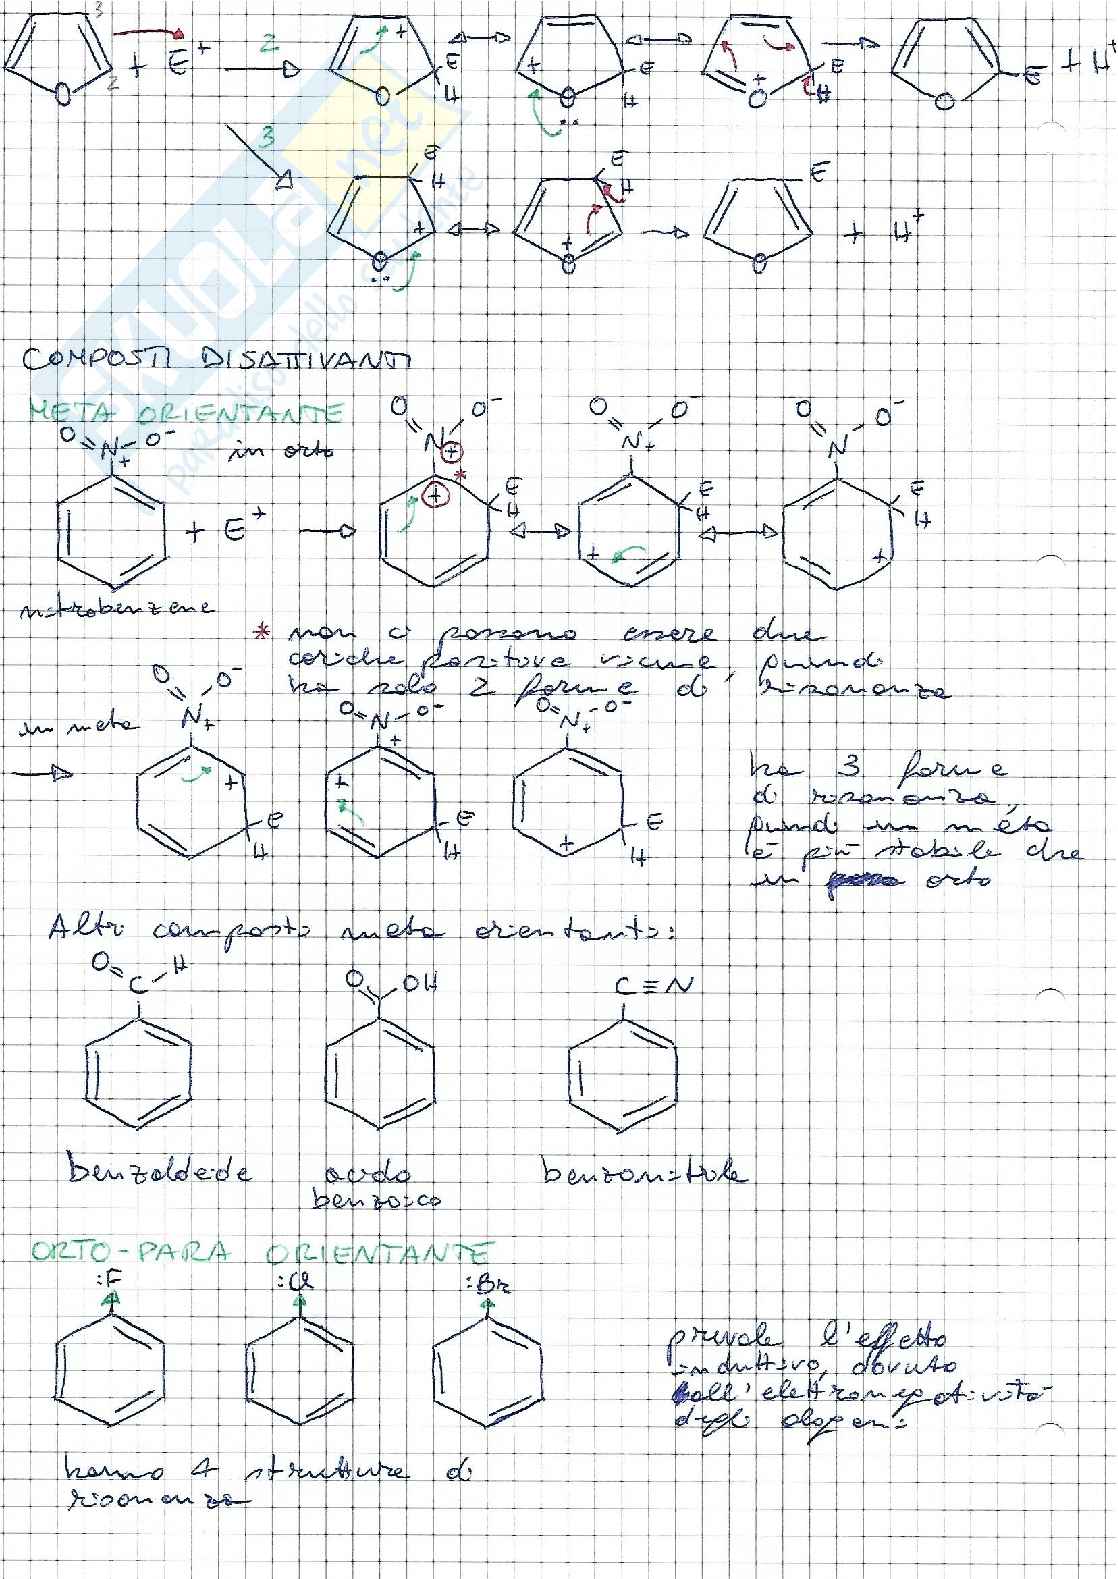 3
2
+ E+
2
+
E
H
O
+
E
H
O
+
E
H
O
E
O
+ H+
3
E
H
+
O
E
H
+
O
E
O
+ H+
SKUOLA.net
paradiso dello studente
COMPOSTI DISATTIVANTI
META ORIENTANTE
O N+ O-
in orto
+ E+
nitrobenzene
O N + O-
+ *
E
H
O N+ O-
E
H
+
O N O-
E
H
+
* non ci possono essere due
cariche positive vicine, quindi
ha solo 2 forme di risonanza
in meta
O N+ O-
+
E
H
O N+ O-
+
E
H
O N+ O-
+
E
H
ha 3 forme
di risonanza,
quindi in meta
è più stabile che
in orto
Altri composti meta orientanti:
O C H
O OH
C≡N
benzaldeide
acido
benzoico
benzonitrile
ORTO-PARA ORIENTANTE
:F
:Cl
:Br
prevale l'effetto
induttivo, dovuto
all'elettronegatività
degli alogeni
hanno 4 strutture di
risonanza